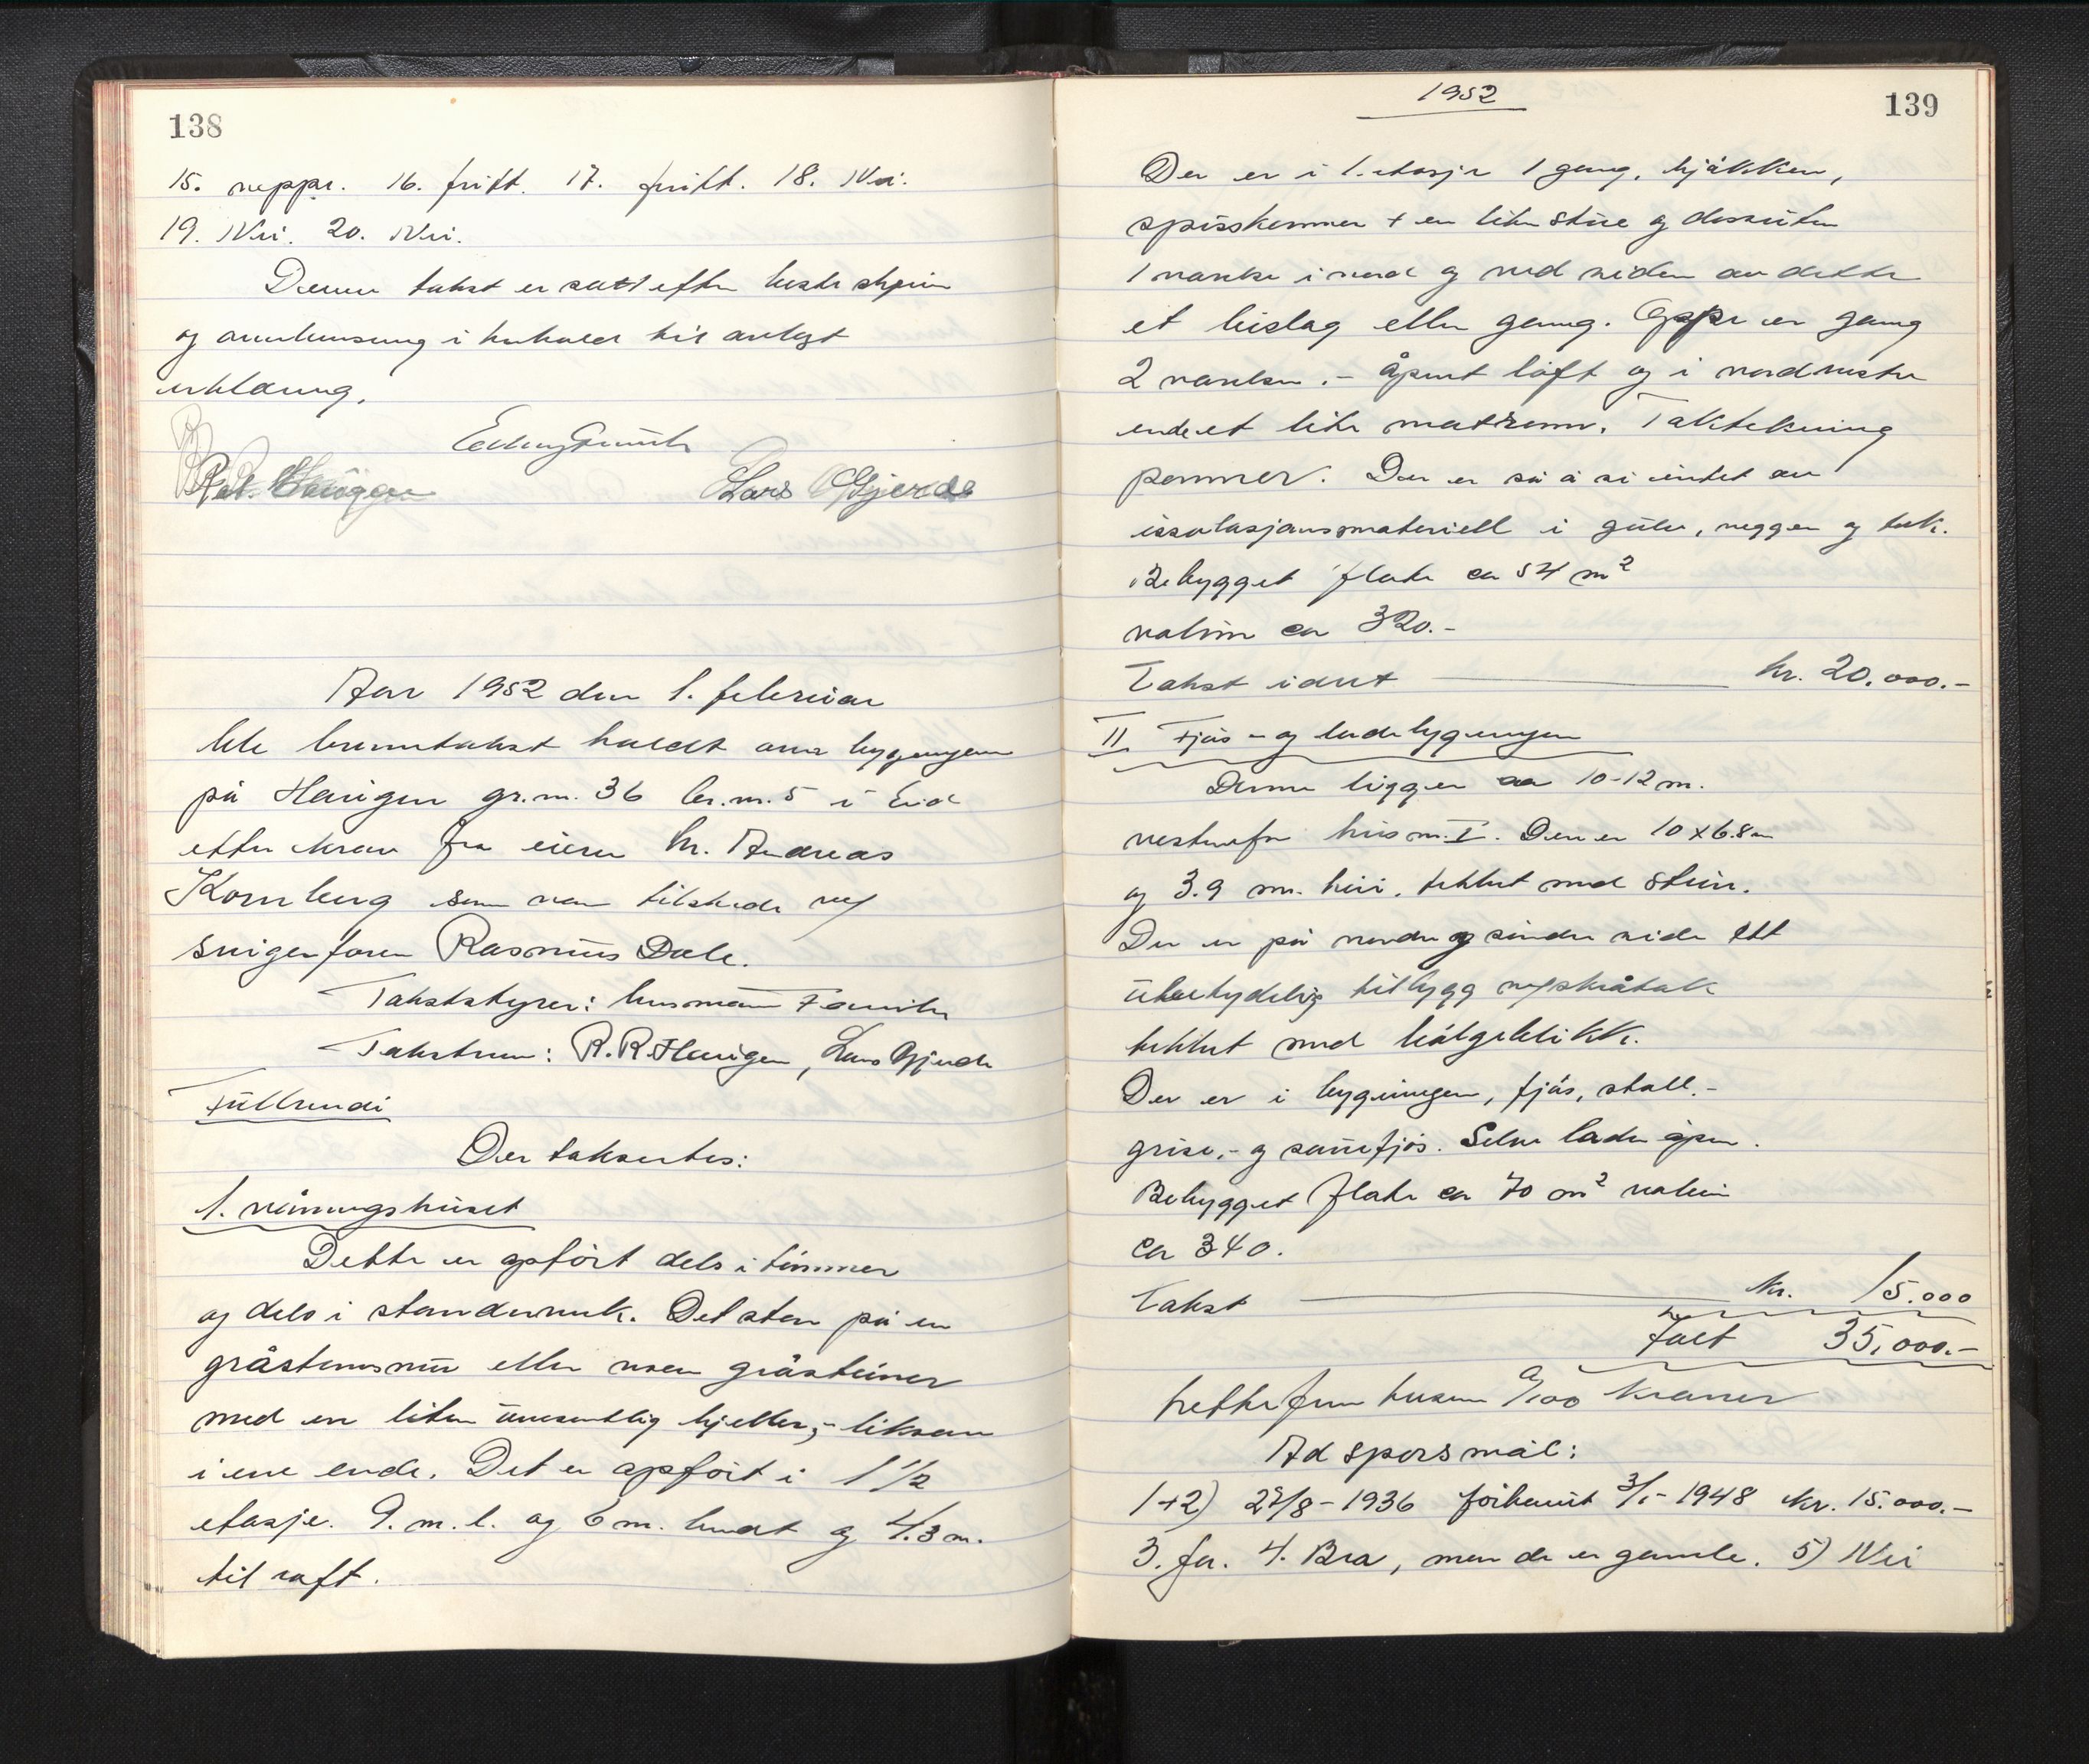 138
15. neppe. 16. fritt. 17. fritt. 18. Nei.
19. Nei. 20. Nei.
Denne takst er satt efter beste skjønn
og i henhold til avlagt
erklæring.
Lars Gjerde
Aar 1952 den 1. februar
ble branntakst holdt over bygningene
på Haugen gr.nr. 36 br.nr. 5 i Eid
etter krav fra eieren hr. Andreas
Kornberg som var tilstede m/
svigerfaren Rasmus Dale.
Takststyrer: lensmann
Takstmenn: R. R. Haugen, Lars Gjerde
Der takseertes:
1. våningshuset
Dette er opført dels i tømmer
og dels i standerverk. Det står på en
gråstensmur eller noen gråsteiner
med en liten uvesentlig kjeller,-liksom
i ene ende. Det er opført i 1 1/2
etasje. 9. m. l. og 6 m. bredt og 4.3 m.
til raft.
1952
139
Der er i 1. etasje 1 gang, kjøkken,
spisskammer + en liten stue og dessuten
1 værelse i nord og ved siden av dette
et bislag eller gang. Oppe er gang
2 værelser.- åpent loft og i nordvestre
ende et lite matrom. Taktekning
panner. Der er så å si intet av
issolasjonsmateriell i gulv, vegger og tak.
Bebygget flate ca 54 m²
volum ca 320.-
Takst idut kr. 20.000.-
II Fjøs - og ladebygningen
Denne ligger ca 10-12 m.
vestenfor hus nr. I. Den er 10 x 6.8 m
og 3.9 m. høi. tekket med stein.
Der er på nordre og søndre side ett
ubetydelig tilbygg m/skråtak
tekket med bølgeblikk.
Der er i bygningen, fjøs, stall.-
grise,- og sauefjøs. Selve laden åpen.
Bebygget flate ca 70 m² volum
ca 340.
Takst kr. 15.000
Talt 35.000.-
trettifem tusen 0/100 kroner
Ad spørsmål:
1+2) 27/8-1936 forhøiet 3/1-1948 kr. 15.000.-
3. Ja. 4. Bra, men de er gamle. 5) Nei